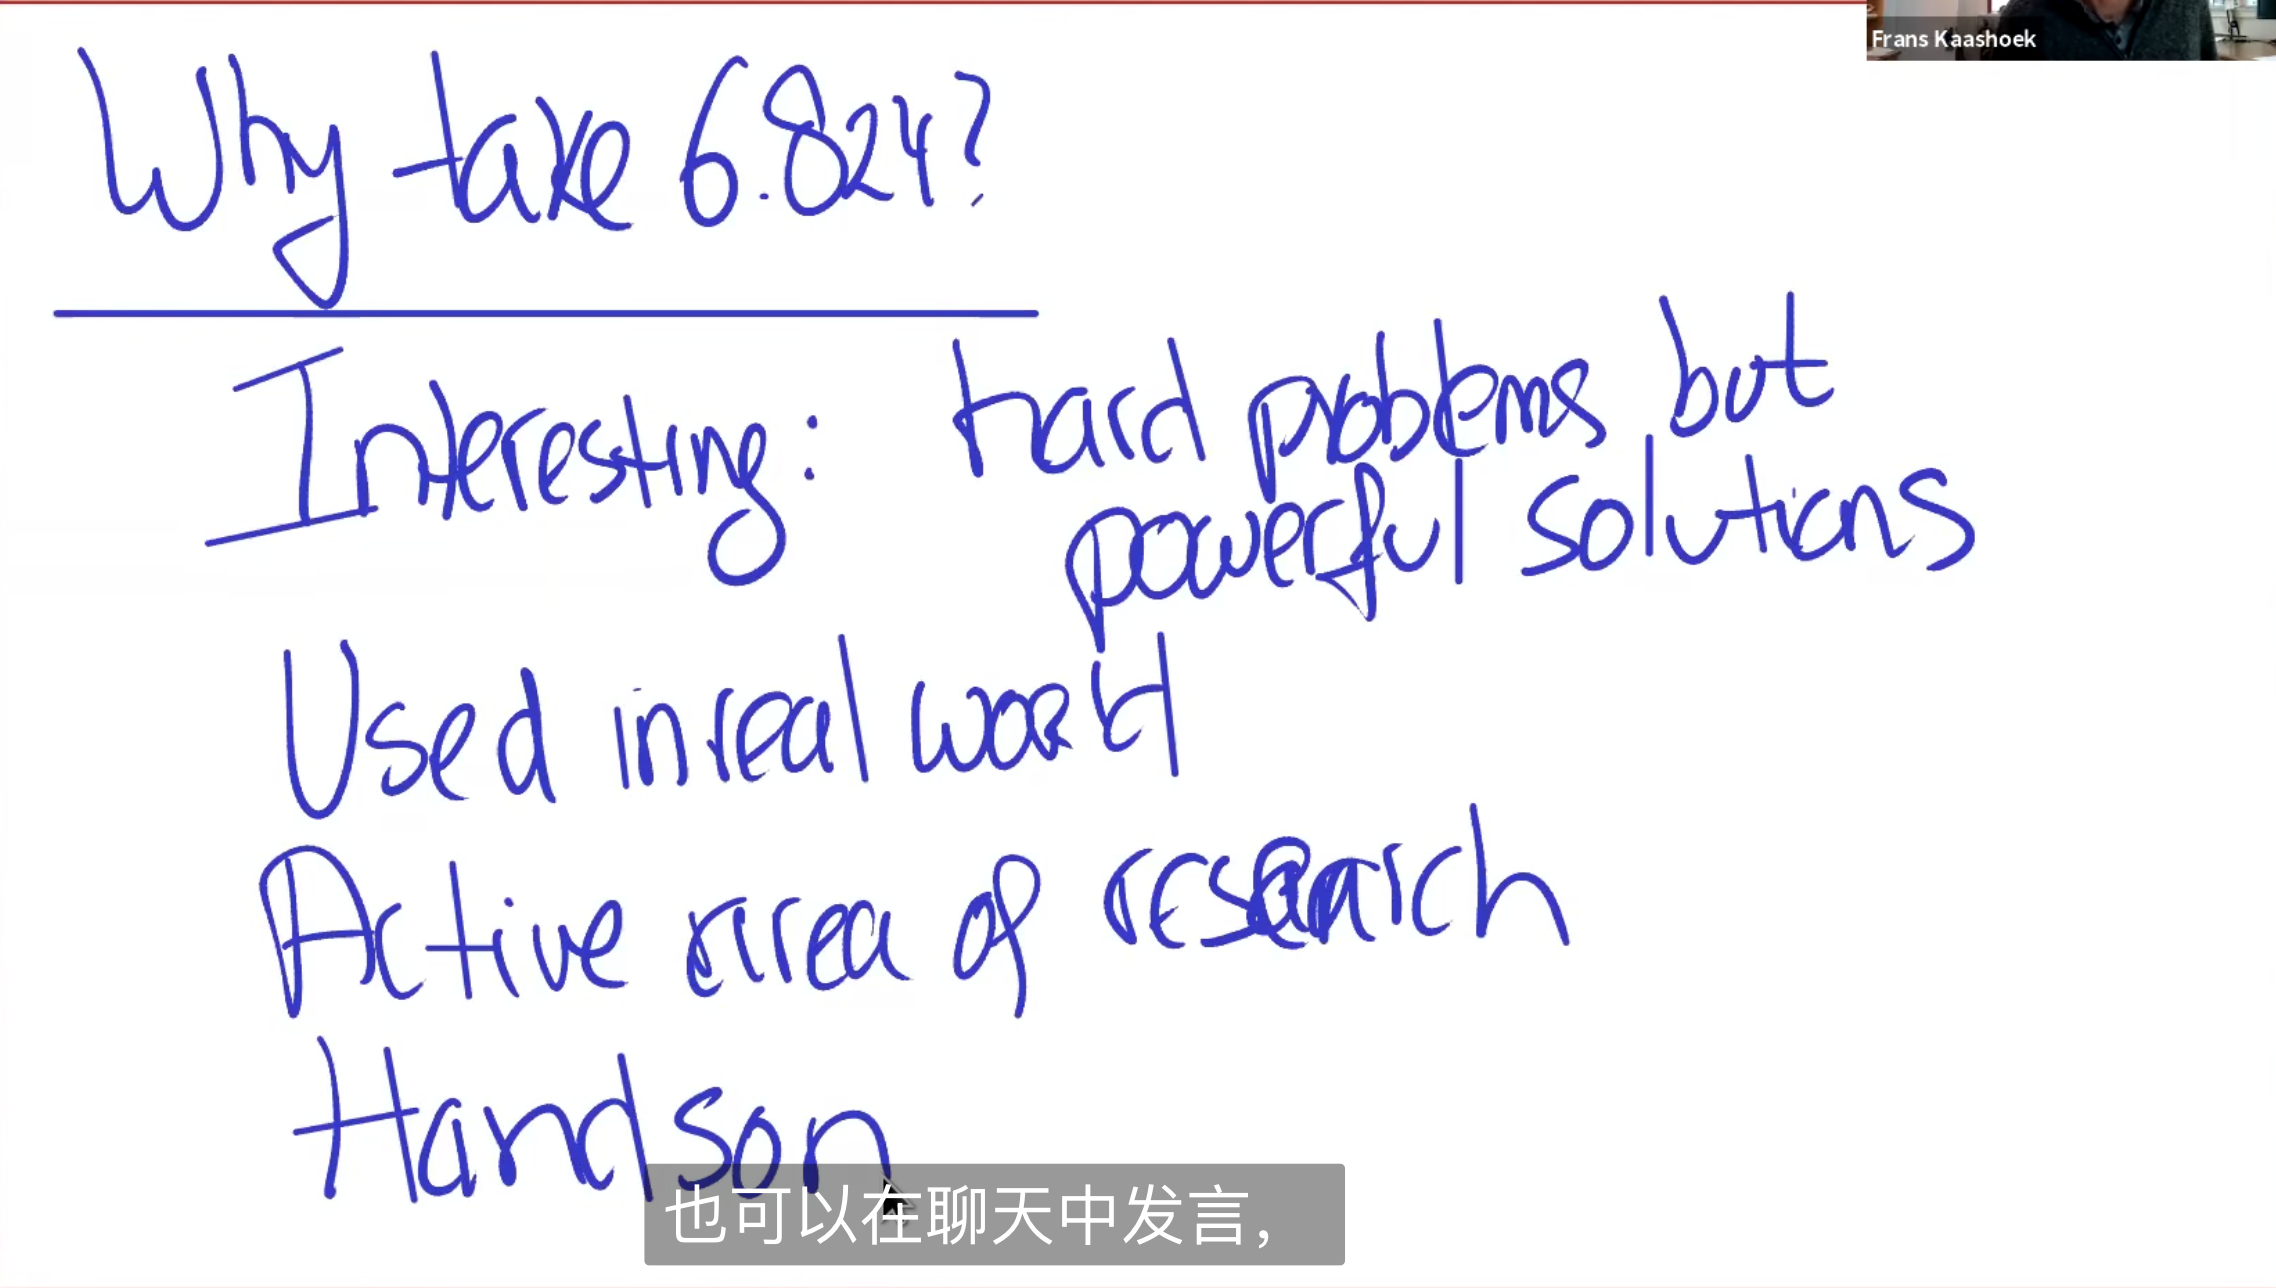 Frans Kaashoek
Why take 6.824?
Interesting: hard problems but
powerful solutions
Used in real world
Active area of research
Hands on
也可以在聊天中发言，